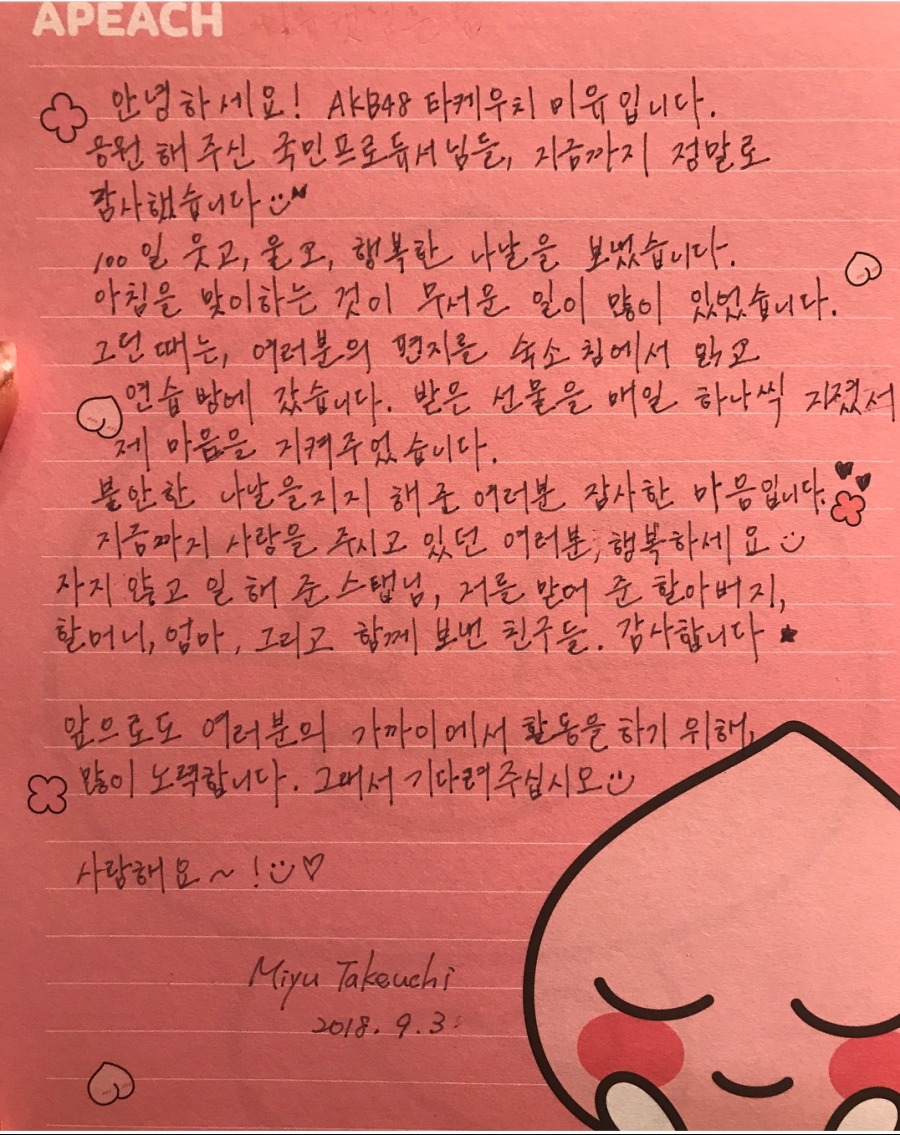 APEACH
안녕하세요! AKB48 타케우치 미유입니다.
응원 해 주신 국민프로듀서님들, 지금까지 정말로
감사했습니다
100일 웃고, 울고, 행복한 나날을 보냈습니다.
아침을 맞이하는 것이 무서운 일이 많이 있었습니다.
그런 때는, 여러분의 편지를 숙소 침에서 읽고
연습 방에 갔습니다. 받은 선물을 매일 하나씩 지졌서
제 마음을 지켜주었습니다.
불안한 나날을지지 해 준 여러분 감사한 마음입니다.
지금까지 사랑을 주시고 있던 여러분, 행복하세요
자지 않고 일 해 준 스탭님, 저를 믿어 준 할아버지,
할머니, 엄마, 그리고 함께 보낸 친구들. 감사합니다
앞으로도 여러분의 가까이에서 활동을 하기 위해,
많이 노력합니다. 그래서 기다려주십시오
사랑해요~!♡
Miyu Takeuchi
2018. 9. 3